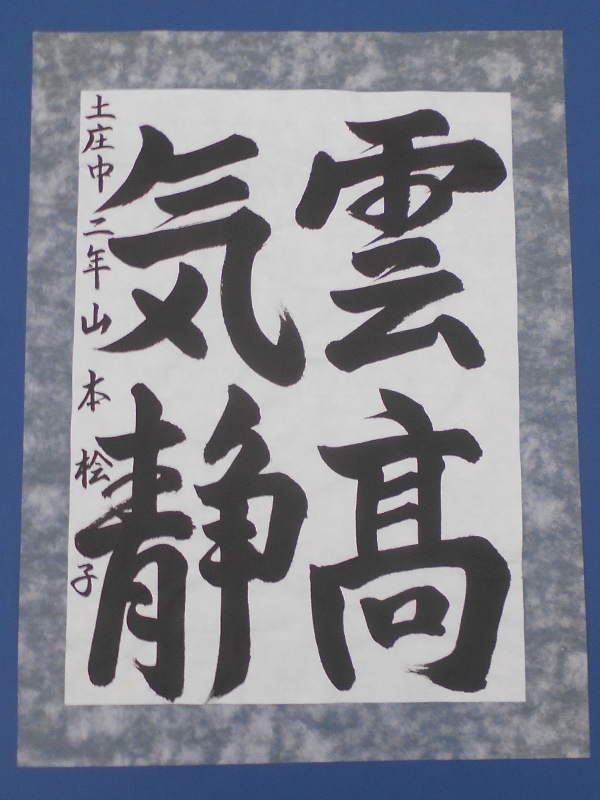 雲髙
気静
土庄中二年山本桧子